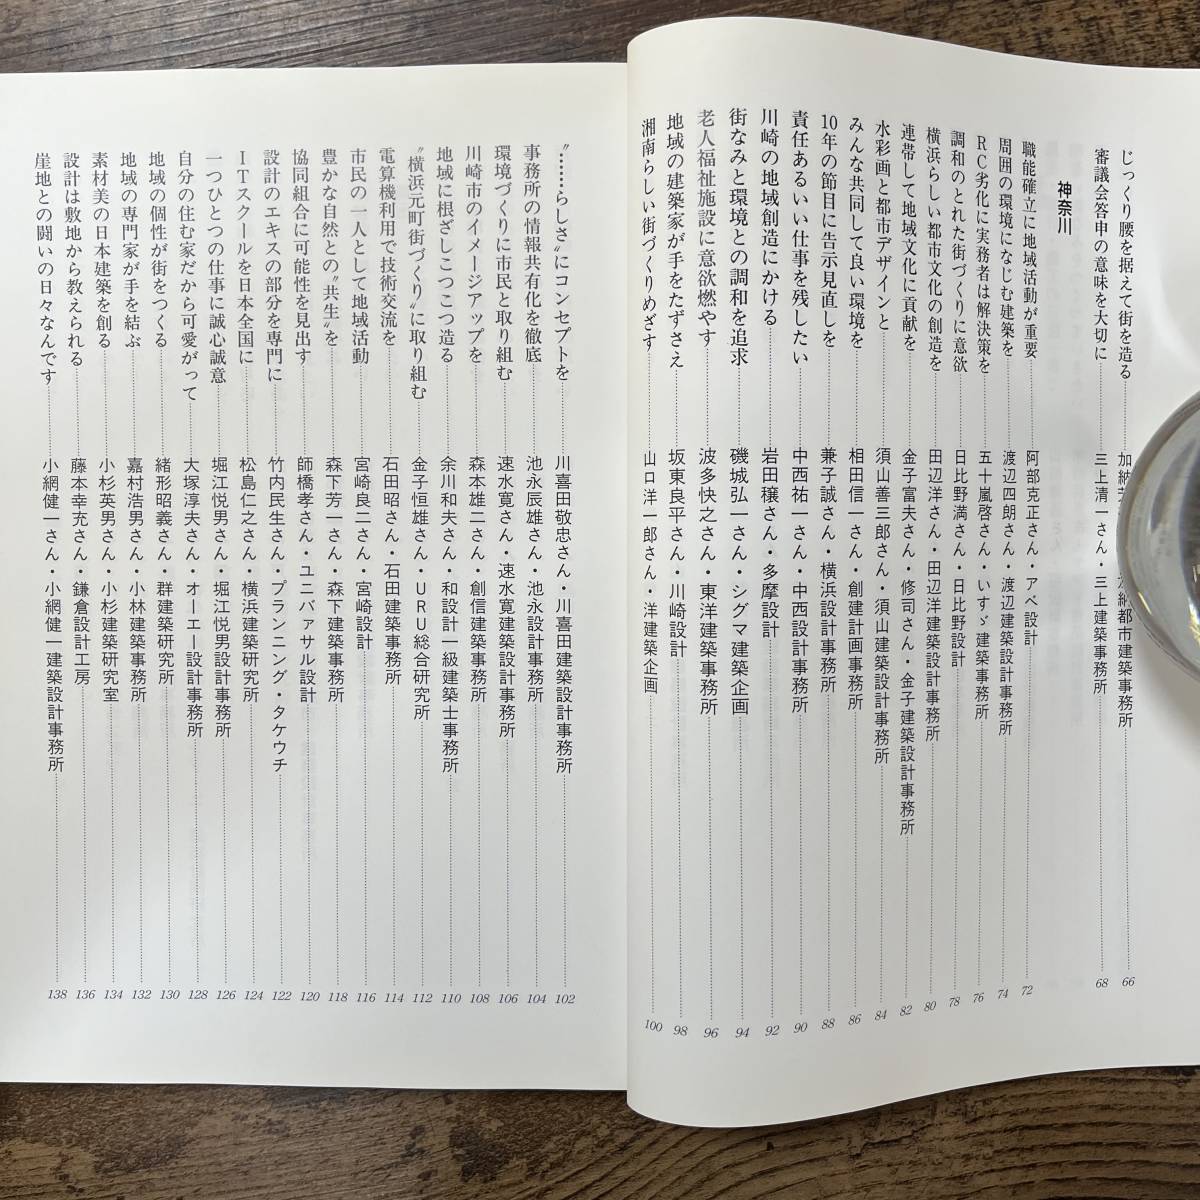 じっくり腰を据えて街を造る……加納 加納都市建築事務所……66
審議会答申の意味を大切に……三上清一さん・三上建築事務所……68
神奈川
職能確立に地域活動が重要……阿部克正さん・アベ設計……72
周囲の環境になじむ建築を……渡辺四朗さん・渡辺建築設計事務所……74
RC劣化に実務者は解決策を……五十嵐啓さん・いすゞ建築事務所……76
調和のとれた街づくりに意欲……日比野満さん・日比野設計……78
横浜らしい都市文化の創造を……田辺洋さん・田辺洋建築設計事務所……80
連帯して地域文化に貢献を……金子富夫さん・修司さん・金子建築設計事務所……82
水彩画と都市デザインと……須山善三郎さん・須山建築設計事務所……84
みんな共同して良い環境を……相田信一さん・創建計画事務所……86
10年の節目に告示見直しを……兼子誠さん・横浜設計事務所……88
責任あるいい仕事を残したい……中西祐一さん・中西設計事務所……90
川崎の地域創造にかける……岩田穣さん・多摩設計……92
街なみと環境との調和を追求……磯城弘一さん・シグマ建築企画……94
老人福祉施設に意欲燃やす……波多快之さん・東洋建築事務所……96
地域の建築家が手をたずさえ……坂東良平さん・川崎設計……98
湘南らしい街づくりめざす……山口洋一郎さん・洋建築企画……100
〝……らしさ〟にコンセプトを……川喜田敬忠さん・川喜田建築設計事務所……102
事務所の情報共有化を徹底……池永辰雄さん・池永設計事務所……104
環境づくりに市民と取り組む……速水寛さん・速水寛建築設計事務所……106
川崎市のイメージアップを……森本雄二さん・創信建築事務所……108
地域に根ざしこつこつ造る……余川和夫さん・和設計一級建築士事務所……110
〝横浜元町街づくり〟に取り組む……金子恒雄さん・URU総合研究所……112
電算機利用で技術交流を……石田昭さん・石田建築事務所……114
市民の一人として地域活動……宮崎良二さん・宮崎設計……116
豊かな自然との〝共生〟を……森下芳一さん・森下建築事務所……118
協同組合に可能性を見出す……師橋孝さん・ユニバァサル設計……120
設計のエキスの部分を専門に……竹内民生さん・プランニング・タケウチ……122
ITスクールを日本全国に……松島仁之さん・横浜建築研究所……124
一つひとつの仕事に誠心誠意……堀江悦男さん・堀江悦男設計事務所……126
自分の住む家だから可愛がって……大塚淳夫さん・オーエー設計事務所……128
地域の個性が街をつくる……緒形昭義さん・群建築研究所……130
地域の専門家が手を結ぶ……嘉村浩男さん・小林建築事務所……132
素材美の日本建築を創る……小杉英男さん・小杉建築研究室……134
設計は敷地から教えられる……藤本幸充さん・鎌倉設計工房……136
崖地との闘いの日々なんです……小網健一さん・小網健一建築設計事務所……138